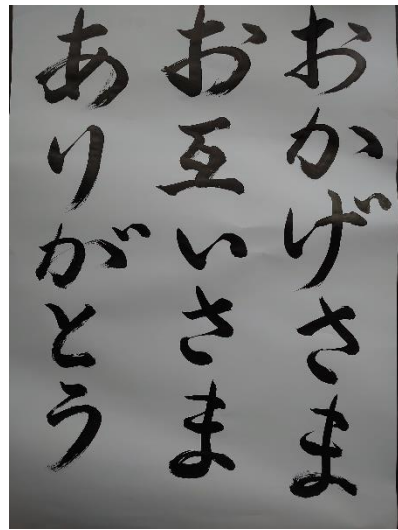 おかげさま
お互いさま
ありがとう